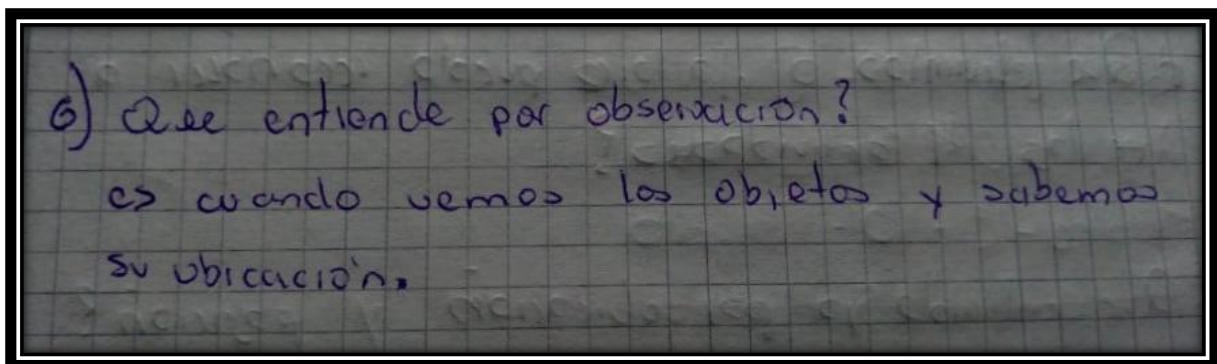 6) Que entiende por observación?
es cuando vemos los objetos y sabemos
su ubicación.